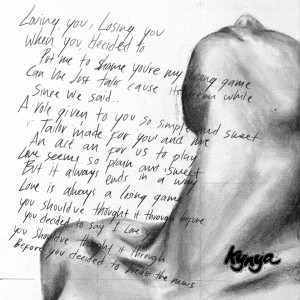 Loving you, Losing you
When you decided to
Put me to shame you're my losing game
Can we just talk cause its been while
Since we said..
A role given to you so simple and sweet
Tailor made for you and me
An act an for us to play
Love seems so plain and sweet
But it always ends in a way
Love is always a losing game
you should've thought it through before
you decided to say I love
you should've thought it through
Before you decided to break the news
kynya